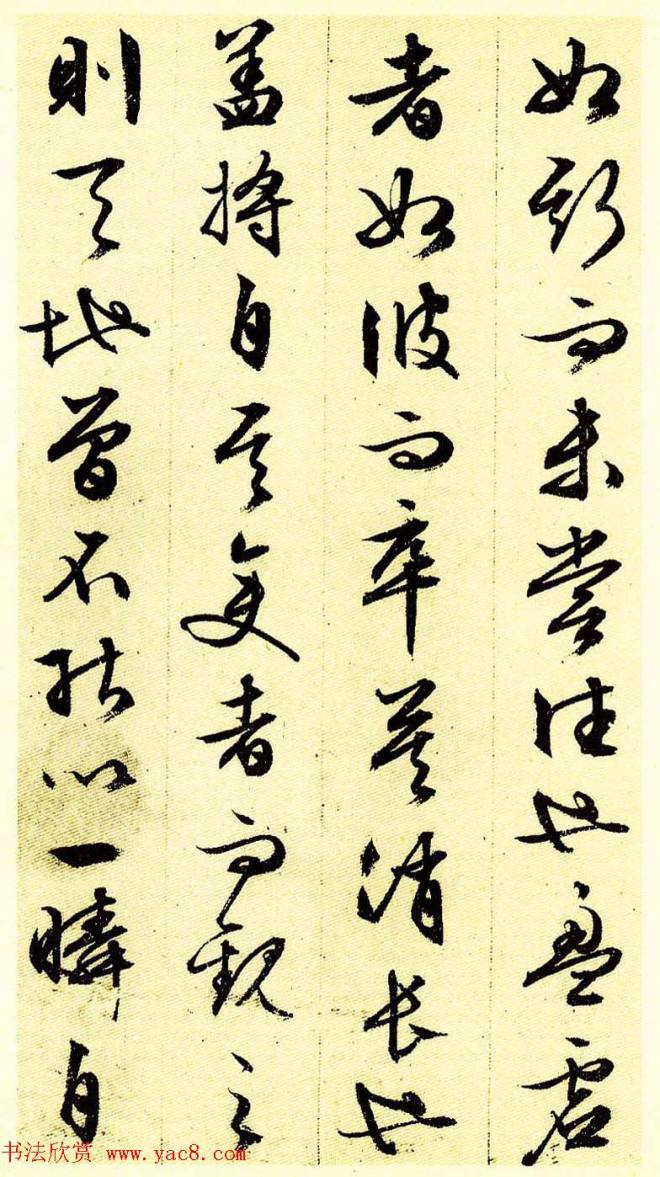 如斯而未嘗往也盈虚
者如彼而卒莫消長也
盖將自其变者而観之
則天地曾不能以一瞬自
书法欣赏 www.yac8.com